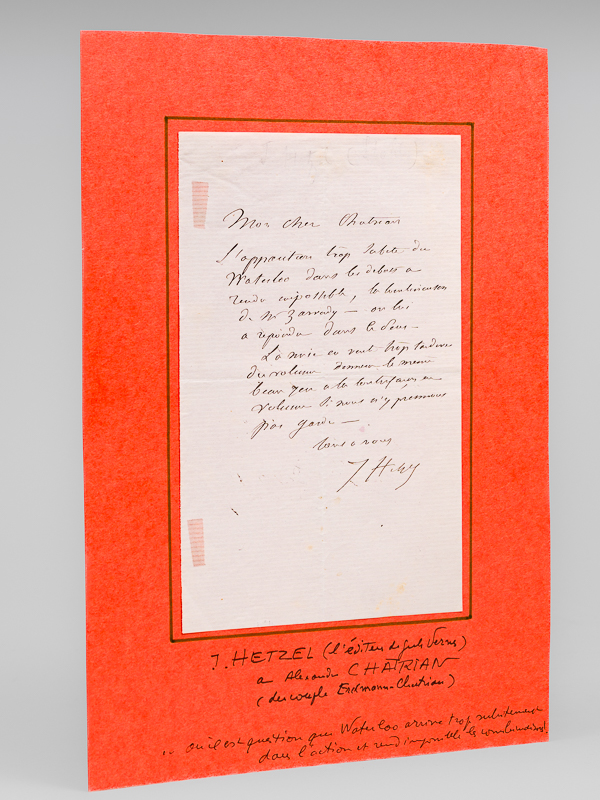 Mon cher Chatrian
L'apparition trop subite du
Waterloo dans les débats a
rendu impossible, la combinaison
de Mr Zarrady — on lui
a répondu dans ce sens —
La mise en vente trop tardive
du volume donnera le même
beau jeu à la contrefaçon en
volume si nous n'y prenons
pas garde —
tout à vous
J Hetzel
J. HETZEL (l'éditeur de Jules Verne)
à Alexandre CHATRIAN
(du couple Erckmann-Chatrian)
.. où il est question que Waterloo arrive trop subitement
dans l'action et rend impossible les combinaisons!